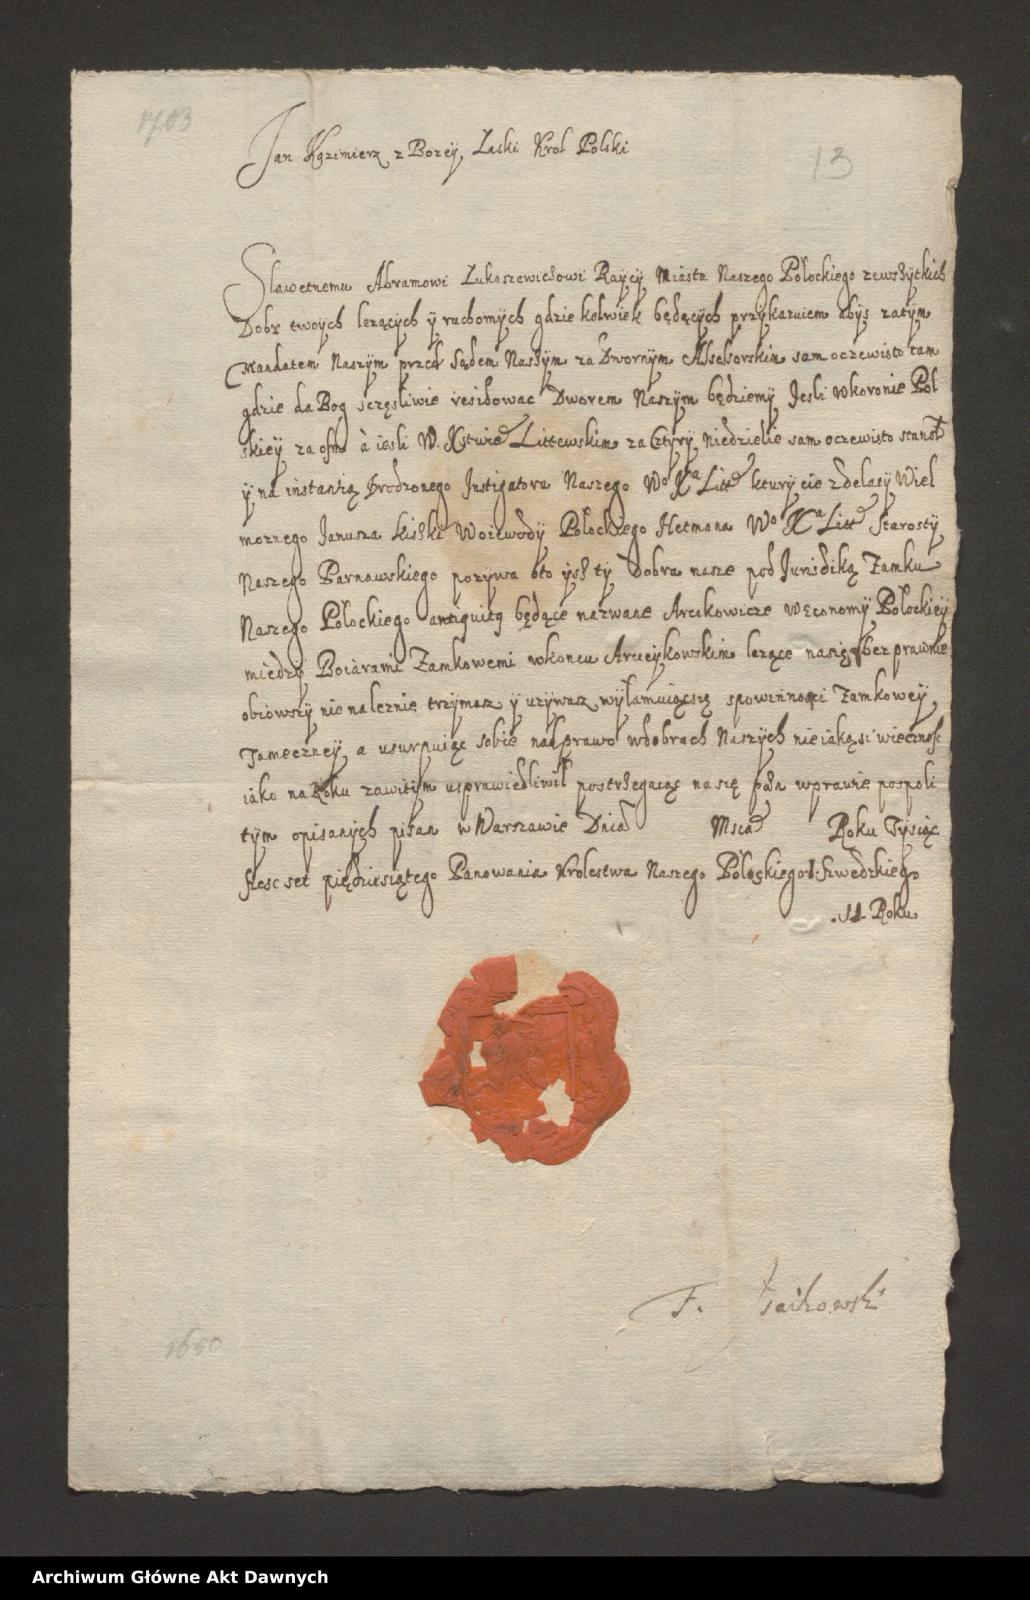 1703
13
Jan Kazimierz z Bozey Laski Krol Polski
Slawetnemu Abramowi Lukaszewiczowi Raycy Miasta Naszego Połockiego zewszytkich
Dobr twoych lezących y ruchomych gdzie kolwiek będących przykazuiem abys zatym
Mandatem Naszym przed Sądem Naszym za Dwornym Assessorskim sam oczewisto tam
gdzie da Bog sczęsliwie residowac Dworem Naszym będziemy Jesli w koronie Pol
skiey za osm à iesli W. Xstwie Littewskim za Cztyry Niedzielie sam oczewisto stanoł
y na instantią Vrodzonego Instigatora Naszego Wo Xa Litt ktury cie z delaty Wiel
moznego Janusza Kiszki Woiewody Połockiego Hetmana Wo Xa Litt Starosty
Naszego Parnawskiego pozywa oto ysz ty Dobra nasze pod Jurisdiką Zamku
Naszego Połockiego antiquitg będące nazwane Arcikowicze w Economy Połockiey
miedzy Boiarami Zamkowemi w koncu Arcieykowskim lezące na się bezprawnie
obiowszy nie nalernie trzymasz y uzywasz wyłamuiącsię spowinnosci Zamkowey
Tameczney a usurpuiąc sobie nad prawo w dobrach Naszych nieiakąsi wiecznosc
iako na Roku zawitym usprawiedliwił postrzegaiąc na się paen w prawie pospoli
tym opisanych pisan w Warszawie Dnia Msca Roku Tysiąc
szesc set pięćdziesiątego Panowania Krolestwa Naszego Polskiego y Szwedzkiego
.11. Roku
F. Isaikowski
1650
Archiwum Główne Akt Dawnych